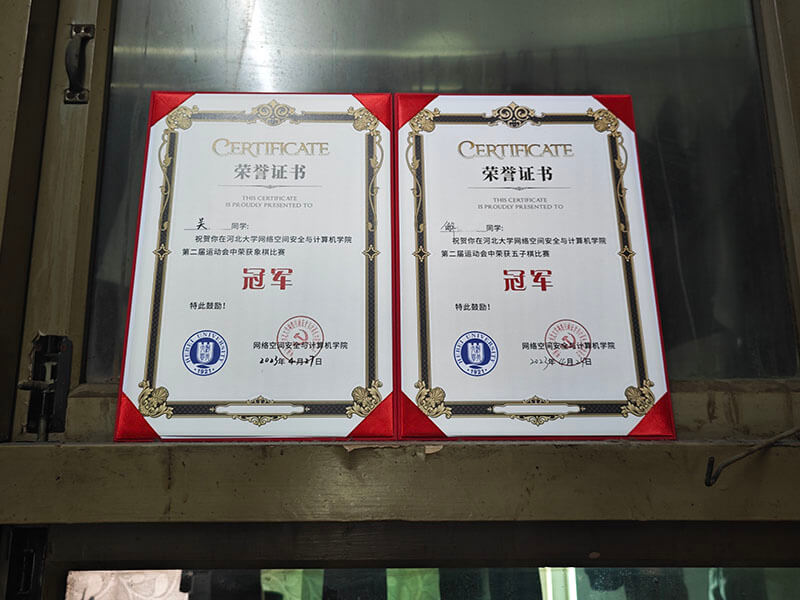 CERTIFICATE
荣誉证书
THIS CERTIFICATE
IS PROUDLY PRESENTED TO
吴 同学:
祝贺你在河北大学网络空间安全与计算机学院
第二届运动会中荣获象棋比赛
冠军
特此鼓励!
HEBEI UNIVERSITY
1921
网络空间安全与计算机学院
2023年4月29日
CERTIFICATE
荣誉证书
THIS CERTIFICATE
IS PROUDLY PRESENTED TO
同学:
祝贺你在河北大学网络空间安全与计算机学院
第二届运动会中荣获五子棋比赛
冠军
特此鼓励!
HEBEI UNIVERSITY
1921
网络空间安全与计算机学院
2023年4月29日